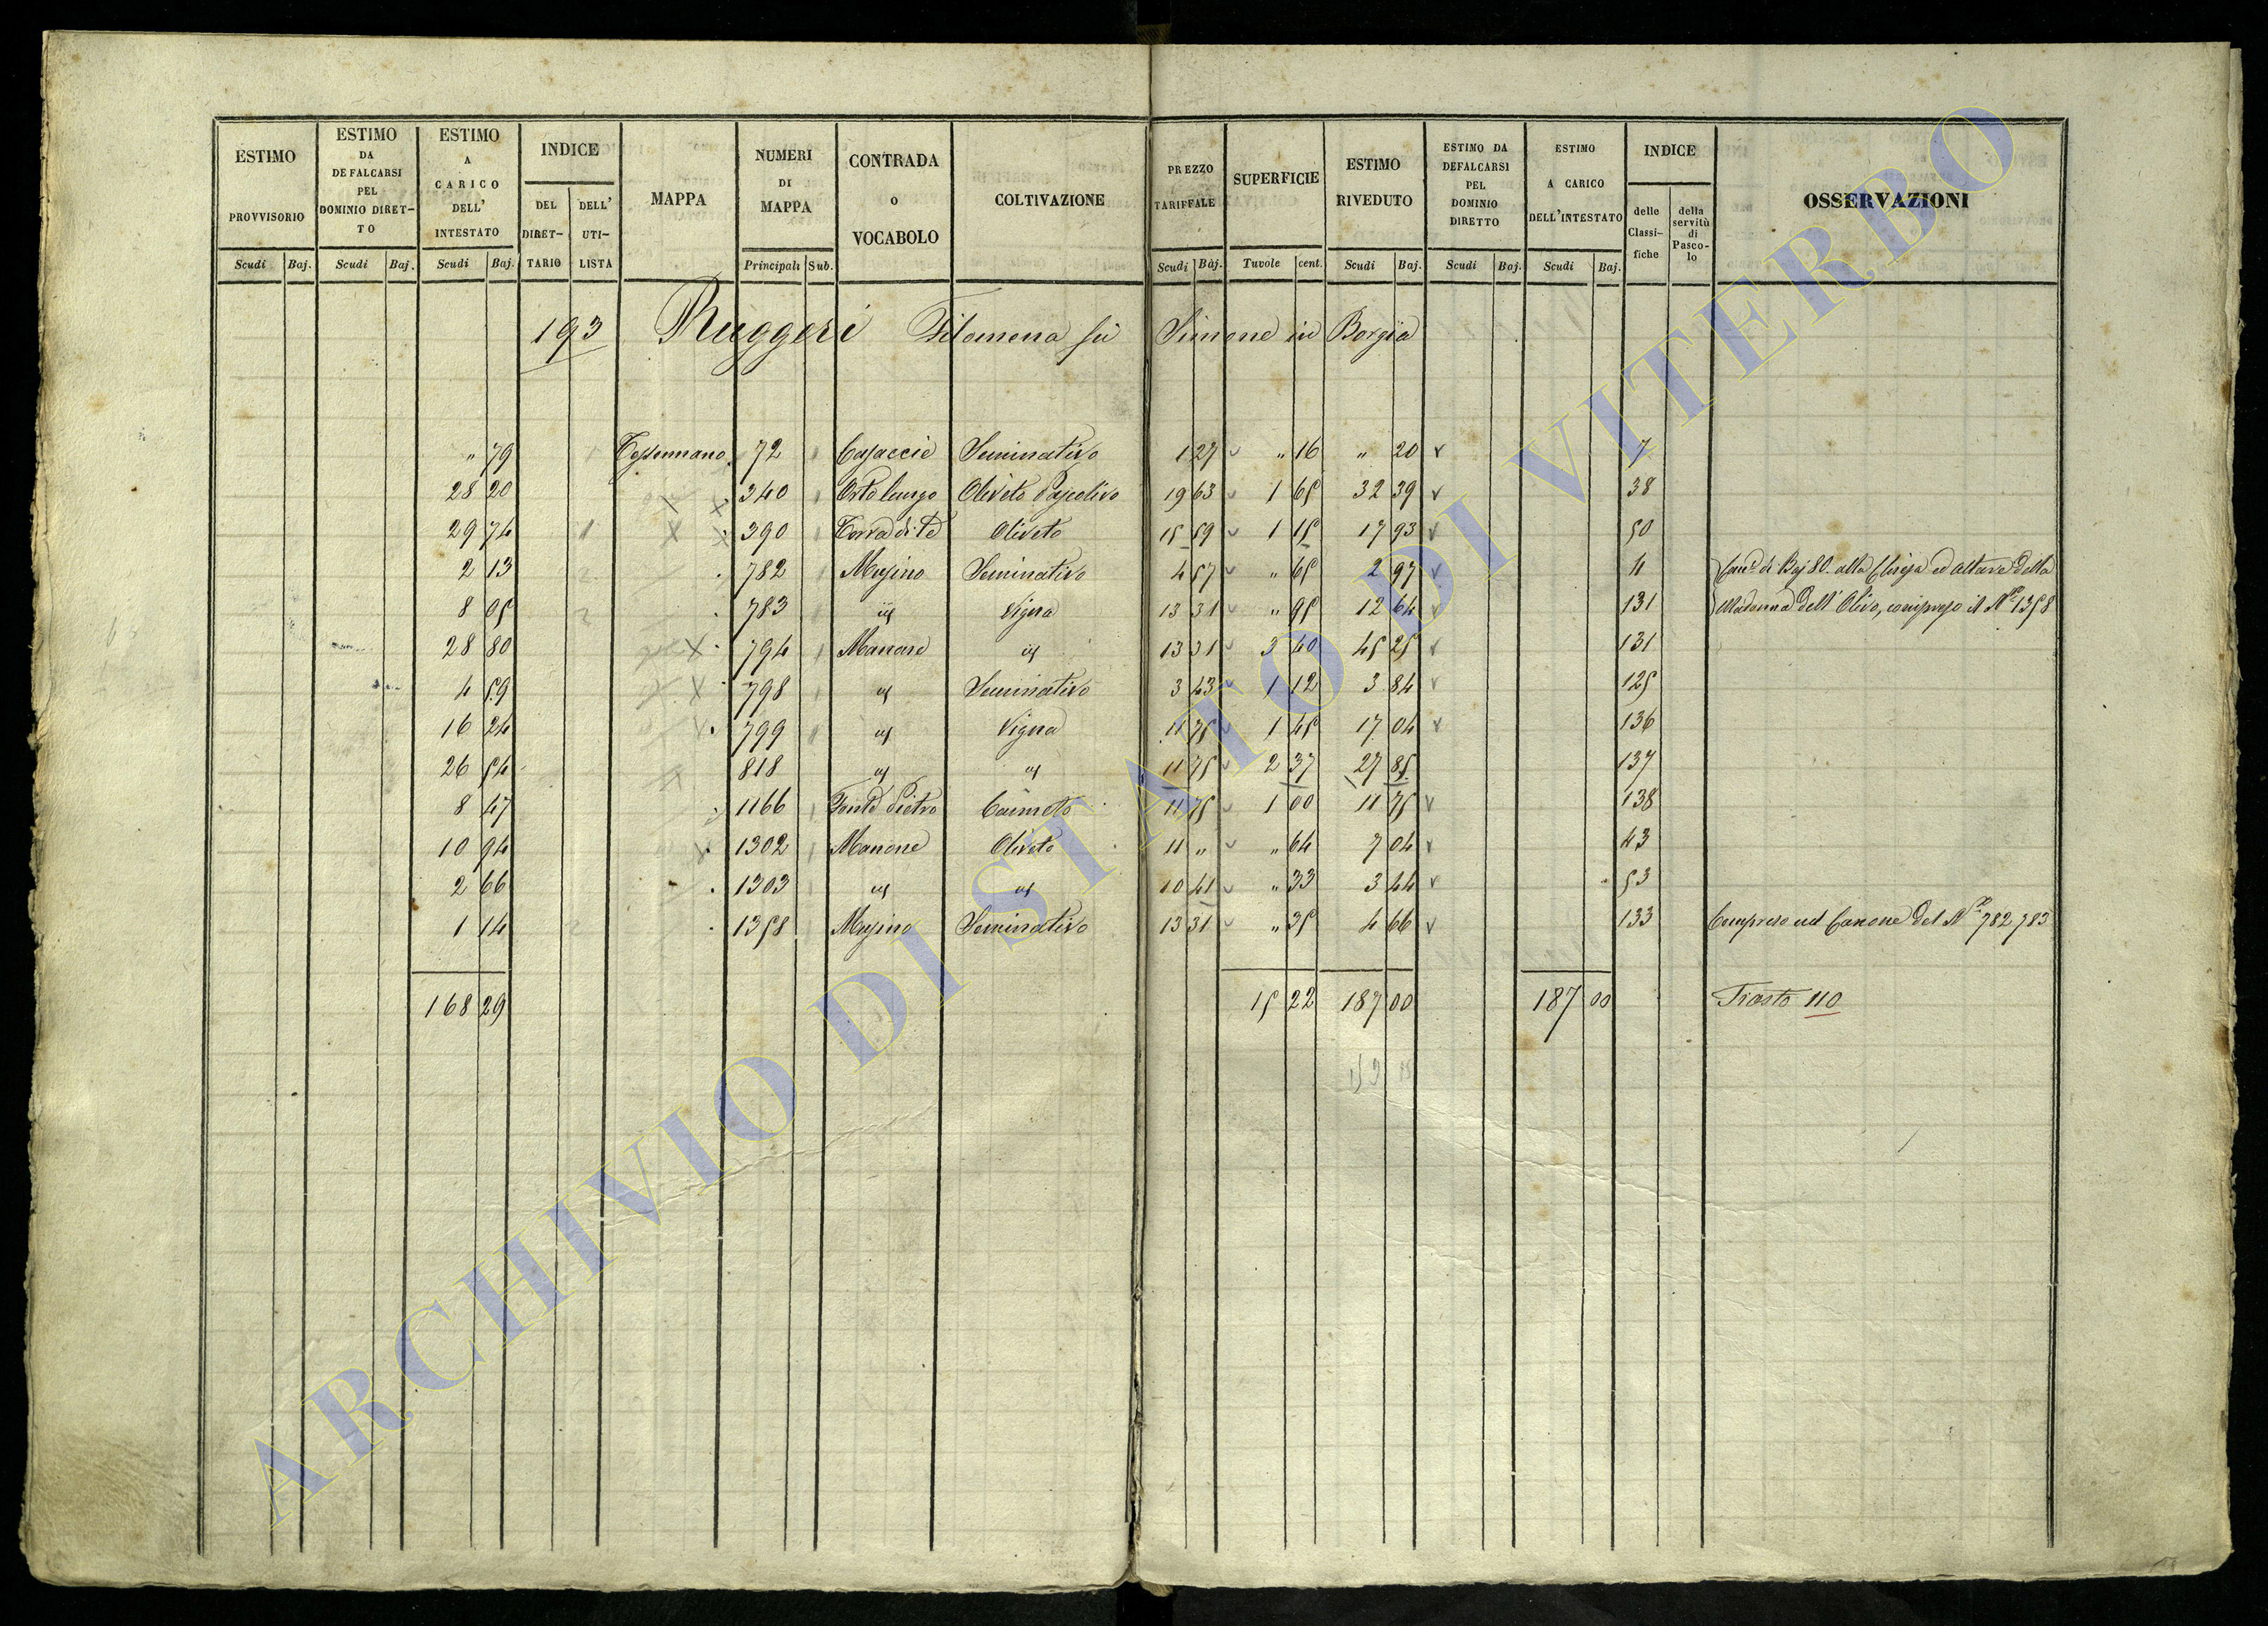 ESTIMO PROVVISORIO Scudi Baj.
ESTIMO DA DEFALCARSI PEL DOMINIO DIRET-TO Scudi Baj.
ESTIMO A CARICO DELL' INTESTATO Scudi Baj.
INDICE DEL DIRET-TARIO DELL' UTI-LISTA
MAPPA
NUMERI DI MAPPA Principali Sub.
CONTRADA O VOCABOLO
COLTIVAZIONE
PREZZO TARIFFALE Scudi Baj.
SUPERFICIE Tavole cent.
ESTIMO RIVEDUTO Scudi Baj.
ESTIMO DA DEFALCARSI PEL DOMINIO DIRETTO Scudi Baj.
ESTIMO A CARICO DELL'INTESTATO Scudi Baj.
INDICE delle Classi-fiche della servitù di Pasco-lo
OSSERVAZIONI
193 Ruggeri Filomena fu Simone in Borgia
" 79 Tessennano 72 Casaccie Seminativo 1 27 " 16 " 20 7
28 20 340 Ortolungo Oliveto Pascolivo 19 63 1 65 32 39 38
29 74 390 Oliveto 15 59 1 15 17 93 50
2 13 782 Musino Seminativo 4 57 " 65 2 97 4 Can.e di Baj 80. alla Chiesa ed altare della
8 05 783 id Vigna 13 31 " 95 12 64 131 Madonna dell' Olivo, compreso il N.° 1358
28 80 794 Manone id 13 31 3 40 45 25 131
4 59 798 id Seminativo 3 43 1 12 3 84 125
16 24 799 id Vigna 11 75 1 45 17 04 136
26 54 818 id id 11 75 2 37 27 85 137
8 47 1166 Pietro Canneto 11 75 1 00 11 75 138
10 94 1302 Manone Oliveto 11 " " 64 7 04 43
2 66 1303 id id 10 41 " 33 3 44 53
1 14 1358 Musino Seminativo 13 31 " 35 4 66 133 Compreso nel Canone del N.° 782 783
168 29 15 22 187 00 187 00 Trasto 110
ARCHIVIO DI STATO DI VITERBO